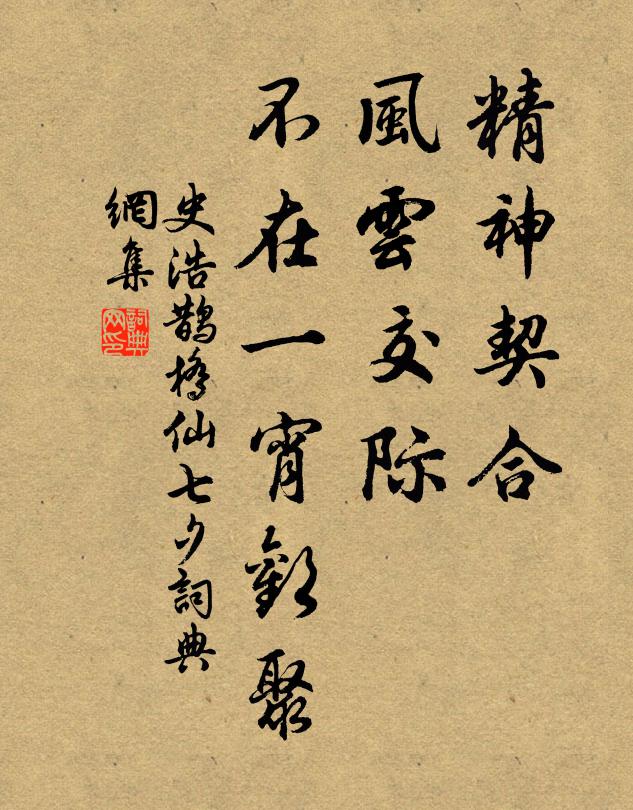 精神契合
風雲交际
不在一宵歡聚
史浩鵲橋仙七夕詞典
網集
詞典网印